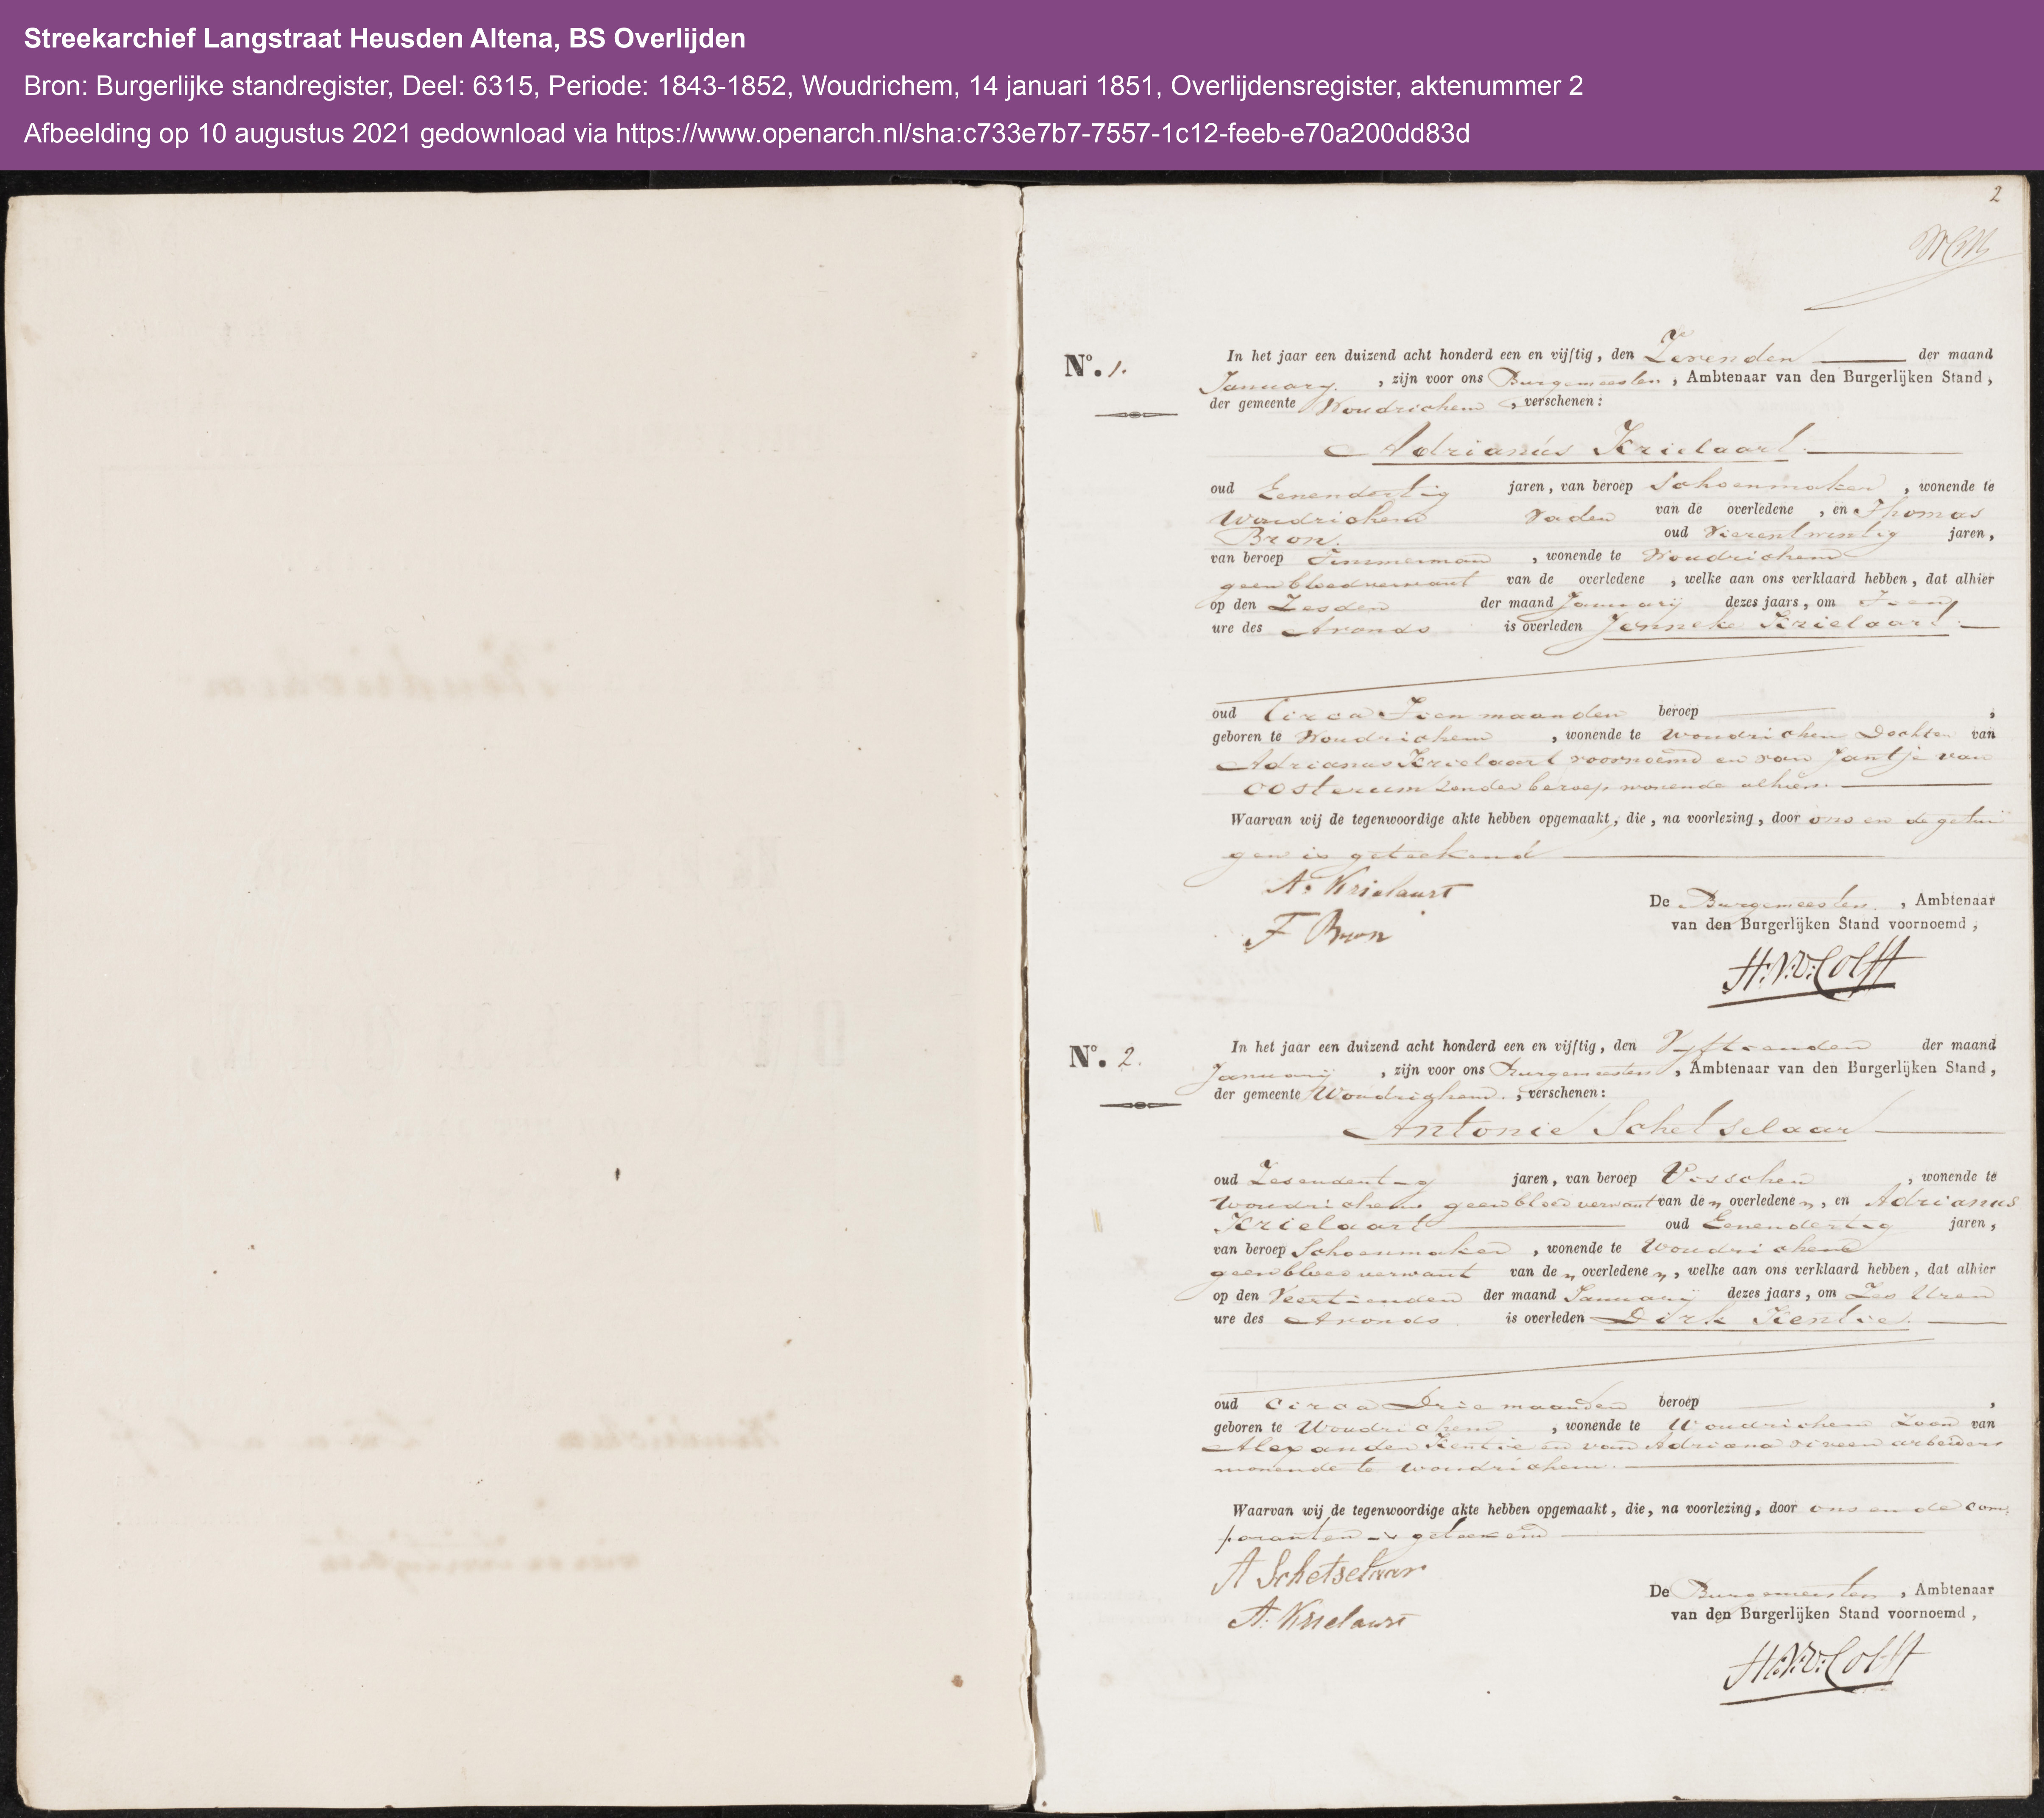 Streekarchief Langstraat Heusden Altena, BS Overlijden
Bron: Burgerlijke standregister, Deel: 6315, Periode: 1843-1852, Woudrichem, 14 januari 1851, Overlijdensregister, aktenummer 2
Afbeelding op 10 augustus 2021 gedownload via https://www.openarch.nl/sha:c733e7b7-7557-1c12-feeb-e70a200dd83d
2
No. 1.
In het jaar een duizend acht honderd een en vijftig, den Zevenden der maand
January, zijn voor ons Burgemeester, Ambtenaar van den Burgerlijken Stand,
der gemeente Woudrichem, verschenen:
Adrianus Krielaart
oud Eenendertig jaren, van beroep Schoenmaker, wonende te
Woudrichem Vader van de overledene, en Thomas
Bron. oud Vierentwintig jaren,
van beroep Timmerman, wonende te Woudrichem
geen bloedverwant van de overledene, welke aan ons verklaard hebben, dat alhier
op den Zesden der maand Januarij dezes jaars, om Tien
ure des Avonds is overleden Jenneke Krielaart
oud Circa Tien maanden beroep ,
geboren te Woudrichem, wonende te Woudrichem Dochter van
Adrianus Krielaart voornoemd en van Jantje van
Oosterum zonder beroep wonende alhier.
Waarvan wij de tegenwoordige akte hebben opgemaakt, die, na voorlezing, door ons en de getui
gen is geteekend
A. Krielaart
Bron
De Burgemeester, Ambtenaar
van den Burgerlijken Stand voornoemd,
No. 2.
In het jaar een duizend acht honderd een en vijftig, den Vyftienden der maand
Januarij, zijn voor ons Burgemeester, Ambtenaar van den Burgerlijken Stand,
der gemeente Woudrighem, verschenen:
Antonie Schetselaar
oud Zesendertig jaren, van beroep Visscher, wonende te
Woudrichem geen bloedverwant van de n overledene n, en Adrianus
Krielaart oud Eenendertig jaren,
van beroep Schoenmaker, wonende te Woudrichem
geen bloedverwant van de n overledene n, welke aan ons verklaard hebben, dat alhier
op den Veertienden der maand Januarij dezes jaars, om Zes Uren
ure des Avonds is overleden Dirk Kentie.
oud Circa Drie maanden beroep ,
geboren te Woudrichem, wonende te Woudrichem Zoon van
Alexander Kentie en van Adriana arbeiders
wonende te Woudrichem.
Waarvan wij de tegenwoordige akte hebben opgemaakt, die, na voorlezing, door ons en de com:
paranten is geteekend
A Schetselaar
A. Krielaart
De Burgemeester, Ambtenaar
van den Burgerlijken Stand voornoemd,